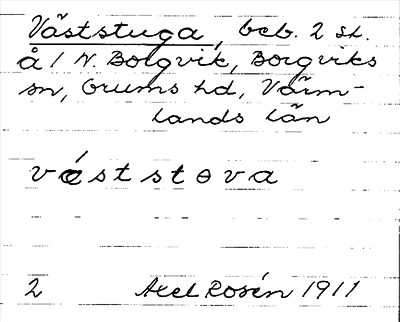 Väststuga, beb. 2 st.
å / N. Borgvik, Borgviks
sn, Grums hd, Värm-
lands län
vé̵ststɵva
2 Axel Rosén 1911